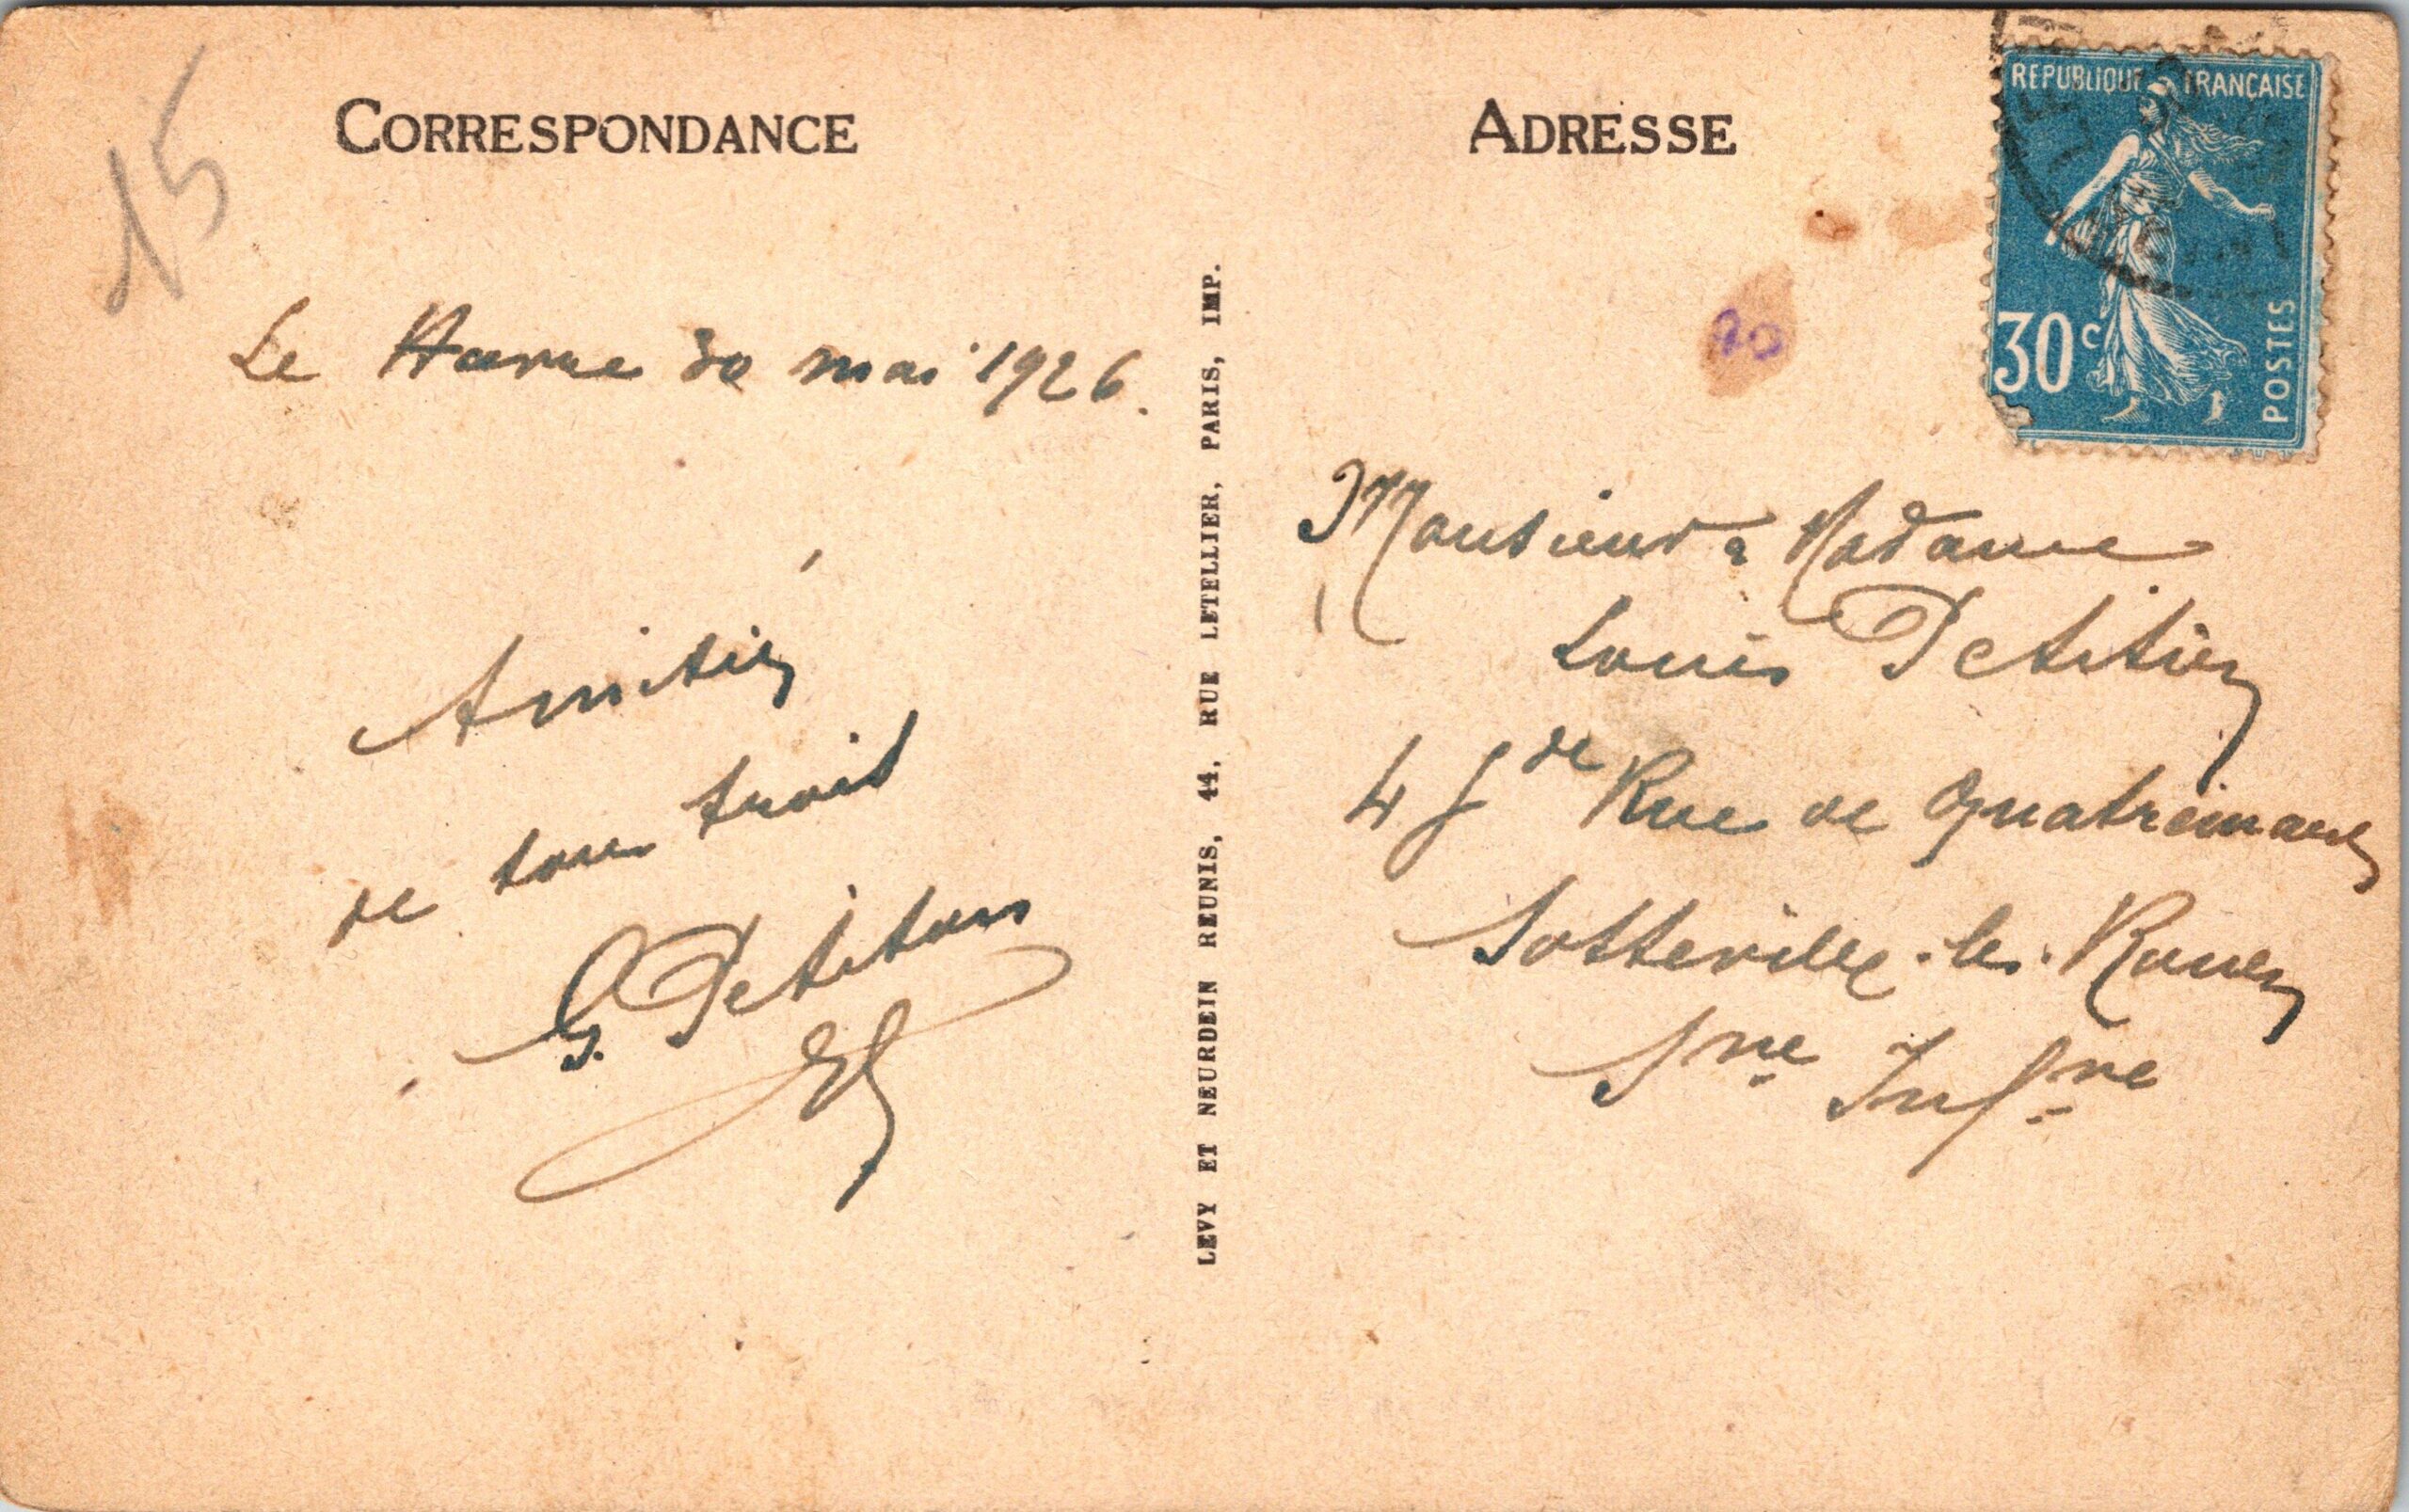 15
CORRESPONDANCE
Le Havre 30 mai 1926.
Amitiés
de tous trois
G.
ADRESSE
REPUBLIQUE FRANÇAISE
30c
POSTES
Monsieur & Madame
Louis
Rue de
Sotteville-les-Rouen
Sne Infre
LEVY ET NEURDEIN REUNIS, 44, RUE LETELLIER, PARIS, IMP.